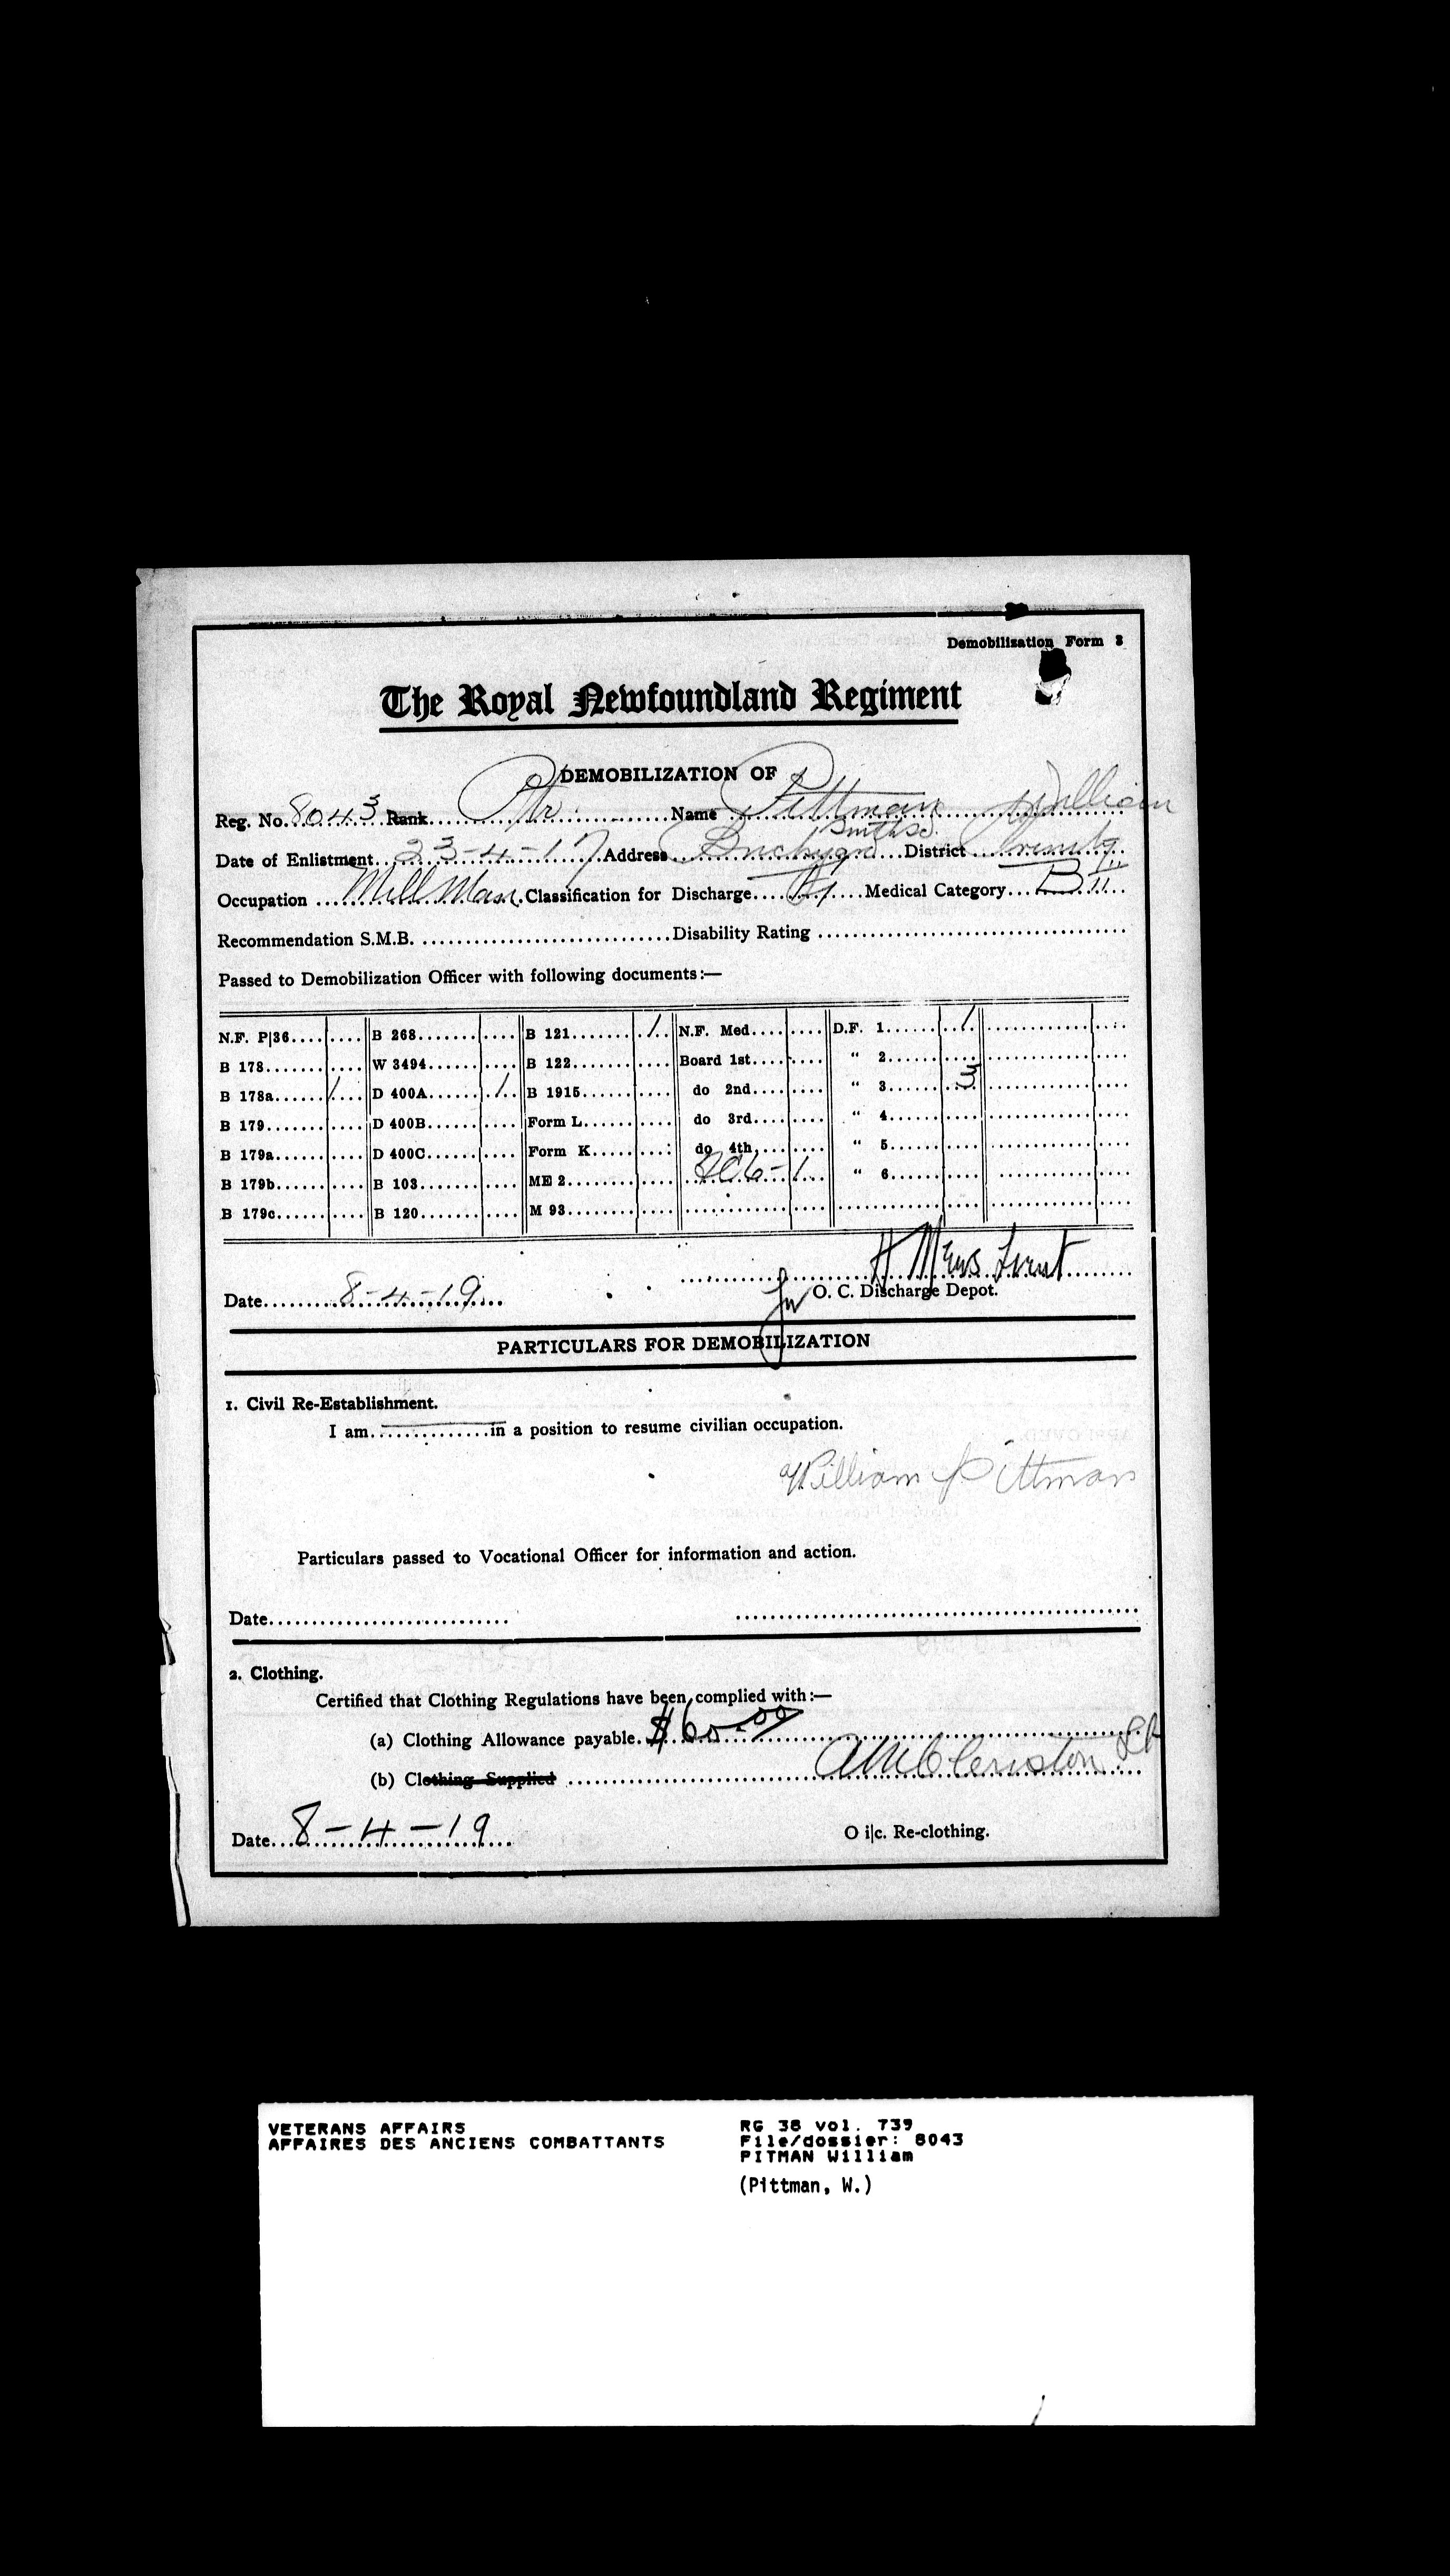 Demobilization Form 3
The Royal Newfoundland Regiment
DEMOBILIZATION OF
Reg. No. 8043 Rank Pte Name Pittman William
Smith Sd.
Date of Enlistment 23-4-17 Address District Trinity
Occupation Mill Man Classification for Discharge Medical Category B II
Recommendation S.M.B. Disability Rating
Passed to Demobilization Officer with following documents:—
N.F. P|36 B 268 B 121 / N.F. Med. D.F. 1 /
B 178 W 3494 B 122 Board 1st " 2
B 178a / D 400A / B 1915 do 2nd " 3
B 179 D 400B Form L do 3rd " 4
B 179a D 400C Form K do 4th " 5
B 179b B 103 ME 2 " 6
B 179c B 120 M 93
H Mews Lieut
Date 8-4-19 for O. C. Discharge Depot.
PARTICULARS FOR DEMOBILIZATION
1. Civil Re-Establishment.
I am in a position to resume civilian occupation.
William Pittman
Particulars passed to Vocational Officer for information and action.
Date
2. Clothing.
Certified that Clothing Regulations have been complied with:—
(a) Clothing Allowance payable. $60.00
(b) Clothing Supplied
Date 8-4-19 O i|c. Re-clothing.
VETERANS AFFAIRS RG 38 vol. 739
AFFAIRES DES ANCIENS COMBATTANTS File/dossier: 8043
PITMAN William
(Pittman, W.)